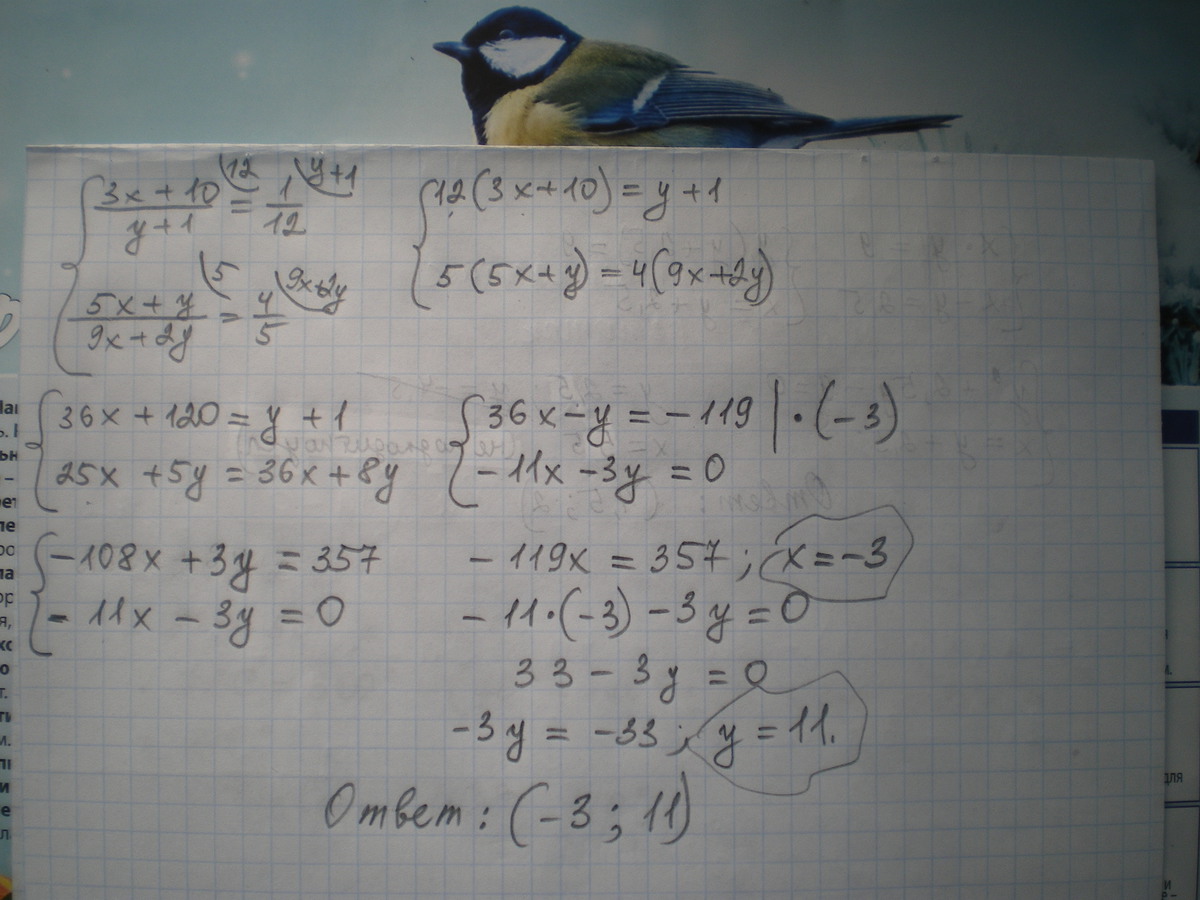 { (3x+10)/(y+1) = 1/12 \12 \y+1
{ (5x+y)/(9x+2y) = 4/5 \5 \9x+2y
{ 12(3x+10) = y+1
{ 5(5x+y) = 4(9x+2y)
{ 36x+120 = y+1
{ 25x+5y = 36x+8y
{ 36x-y = -119 | ·(-3)
{ -11x-3y = 0
{ -108x+3y = 357
{ -11x-3y = 0
-119x = 357; x = -3
-11·(-3)-3y = 0
33-3y = 0
-3y = -33; y = 11.
Ответ: (-3; 11)